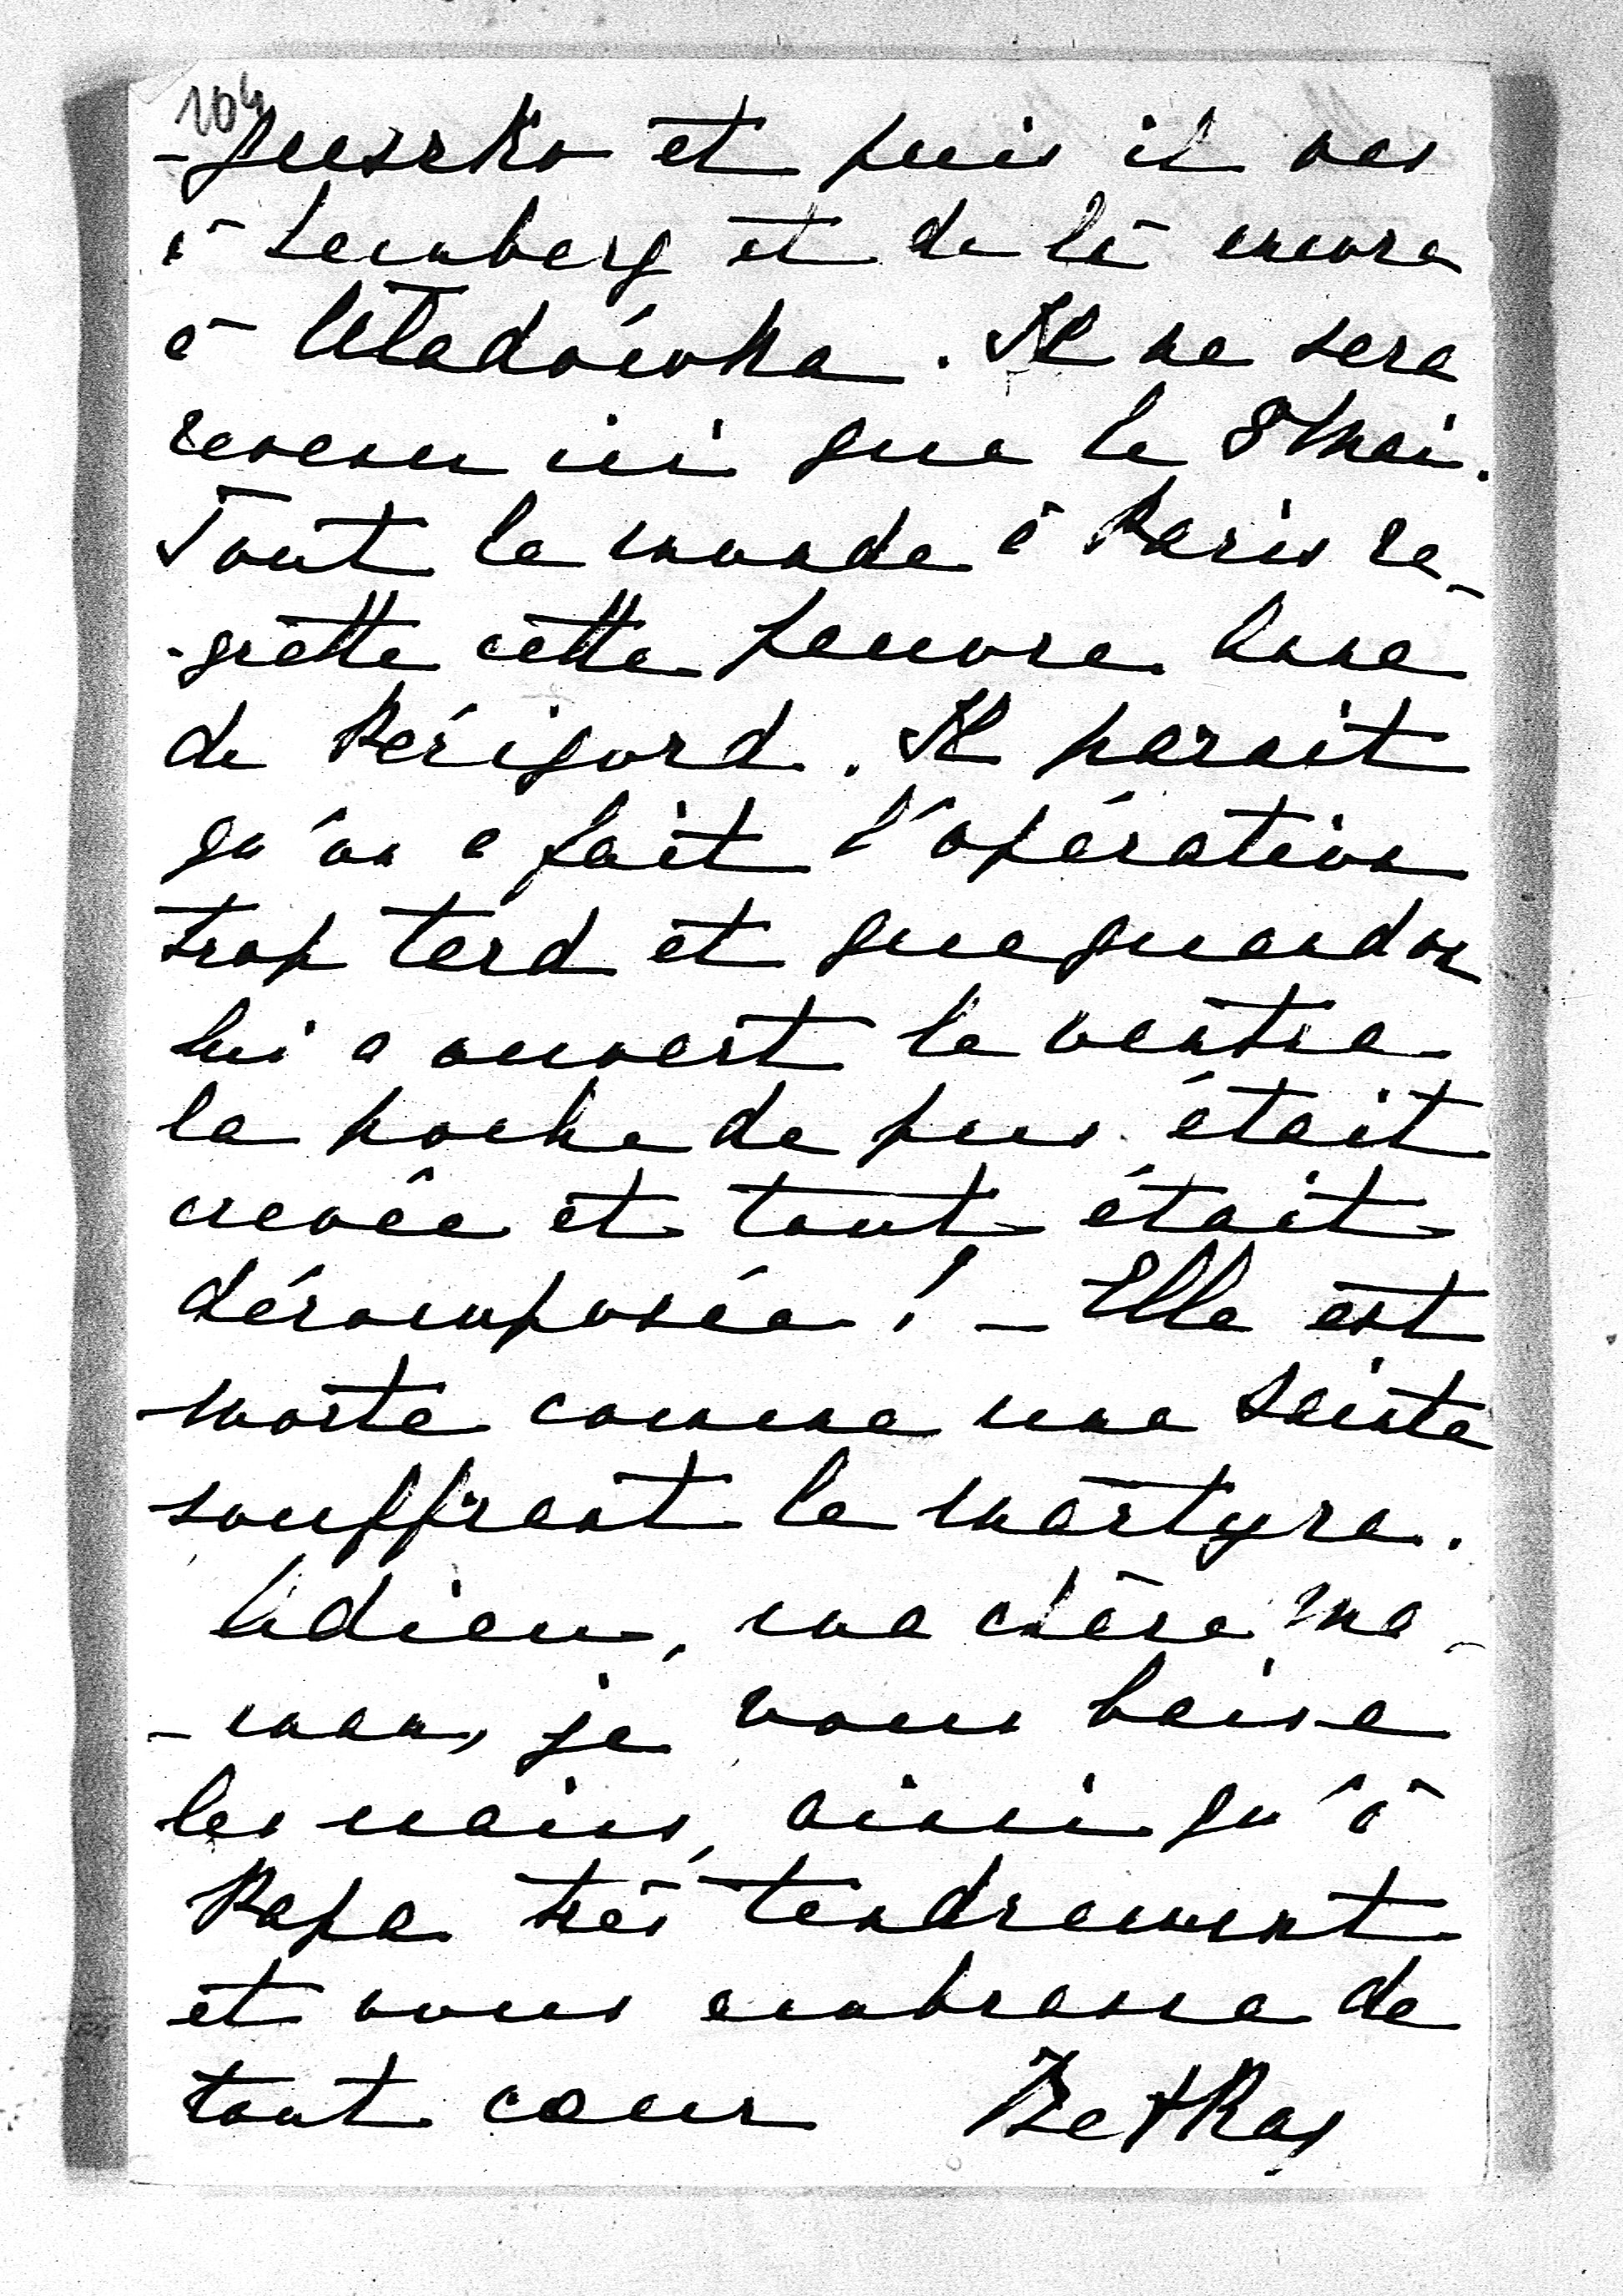 104
-guszko et puis il va
à Lemberg et de là encore
à Uładówka. Il ne sera
revenu ici que le 8 Mai.
Tout le monde à Paris re-
-grètte cètte pauvre Anne
de Périgord. Il parait
qu'on a fait l'opération
trop tard et que quand on
lui a ouvert le ventre
la poche de pus était
crevée et tout était
décomposée! – Elle est
morte comme une sainte
souffrant le martyre.
Adieu, ma chère ma-
-man, je vous baise
les mains, ainsi qu'à
Papa très tendrement
et vous embrasse de
tout cœur